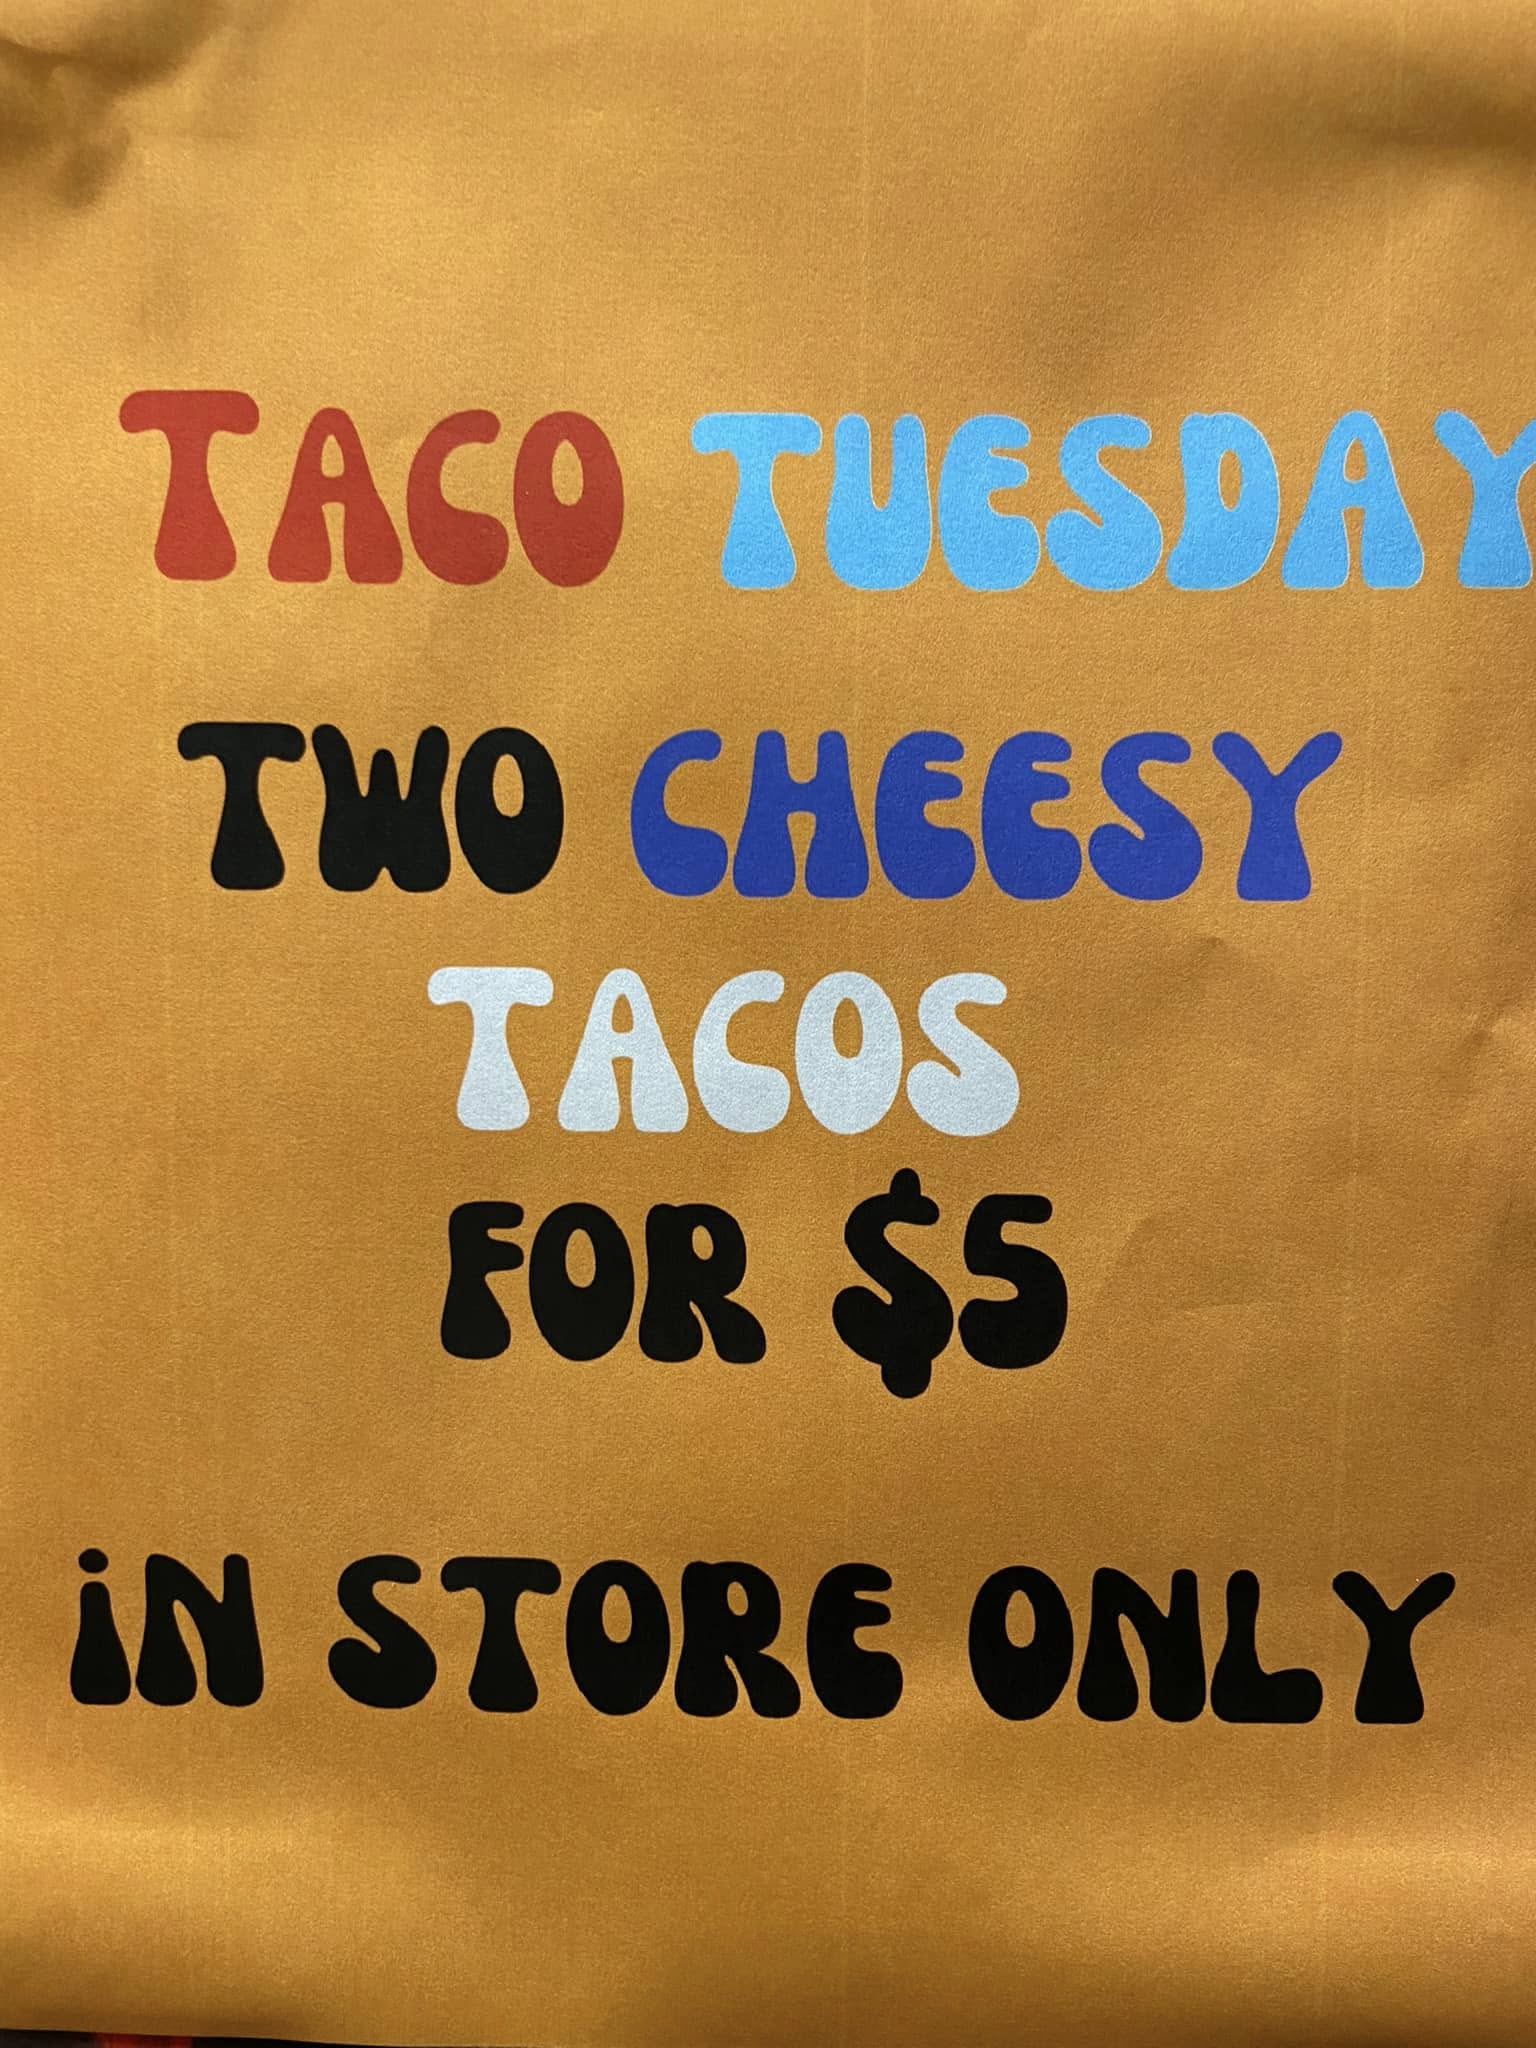 TACO TUESDAY
TWO CHEESY
TACOS
FOR $5
iN STORE ONLY